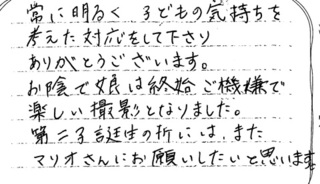 常に明るく 子どもの気持ちを
考えた対応をして下さり
ありがとうございます。
お陰で娘は終始ご機嫌で
楽しい撮影となりました。
第二子誕生の折には、また
マリオさんにお願いしたいと思います